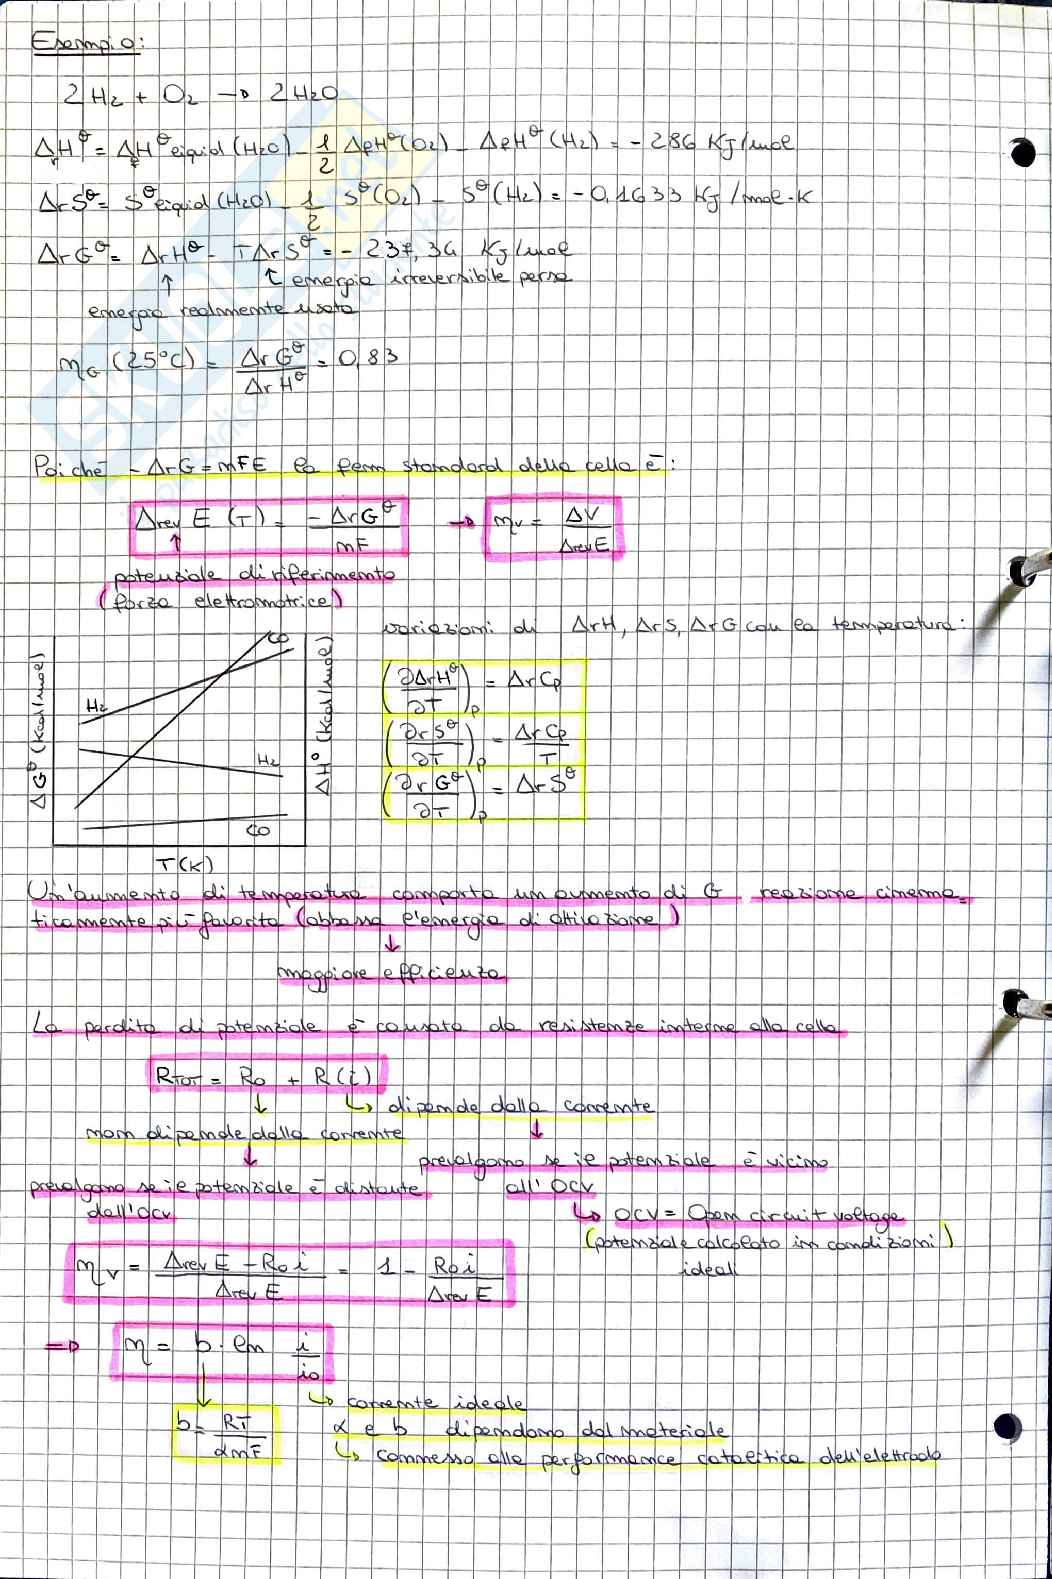 Esempio:
2H₂ + O₂ → 2H₂O
ΔrH^θ = ΔfH^θ liquid (H₂O) - 1/2 ΔfH^θ(O₂) - ΔfH^θ(H₂) = - 286 KJ/mol
ΔrS^θ = S^θ liquid (H₂O) - 1/2 S^θ(O₂) - S^θ(H₂) = - 0,1633 KJ/mol·K
ΔrG^θ = ΔrH^θ - TΔrS^θ = - 237,34 KJ/mol
↑ ↑ energia irreversibile persa
energia realmente usata
η_G (25°C) = ΔrG^θ / ΔrH^θ = 0,83
Poichè - ΔrG = nFE la fem standard della cella è:
Δrev E (T) = -ΔrG^θ / nF → ηv = ΔV / ΔrevE
↑
potenziale di riferimento
(forza elettromotrice)
variazioni di ΔrH, ΔrS, ΔrG con la temperatura:
CO
H₂
H₂
CO
ΔG° (Kcal/mol)
ΔH° (Kcal/mol)
T(K)
(∂ΔrH^θ / ∂T)p = ΔrCp
(∂rS^θ / ∂T)p = ΔrCp / T
(∂rG^θ / ∂T)p = ΔrS^θ
Un'aumento di temperatura comporta un aumento di G reazione cinema=
ticamente più favorita (abbassa l'energia di attivazione)
↓
maggiore efficienza
La perdita di potenziale è causata da resistenze interne alla cella
RTOT = R₀ + R(i)
↓ ↳ dipende dalla corrente
non dipende dalla corrente ↓
↓ prevalgono se il potenziale è vicino
prevalgono se il potenziale è distante all'OCV
dall'OCV ↳ OCV = Open circuit voltage
(potenziale calcolato in condizioni)
ideali
ηv = Δrev E - R₀i / Δrev E = 1 - R₀i / Δrev E
⇒ η = b · ln i / i₀
↓ ↳ corrente ideale
b = RT / αnF α e b dipendono dal materiale
↳ connesso alla performance catalitica dell'elettrodo